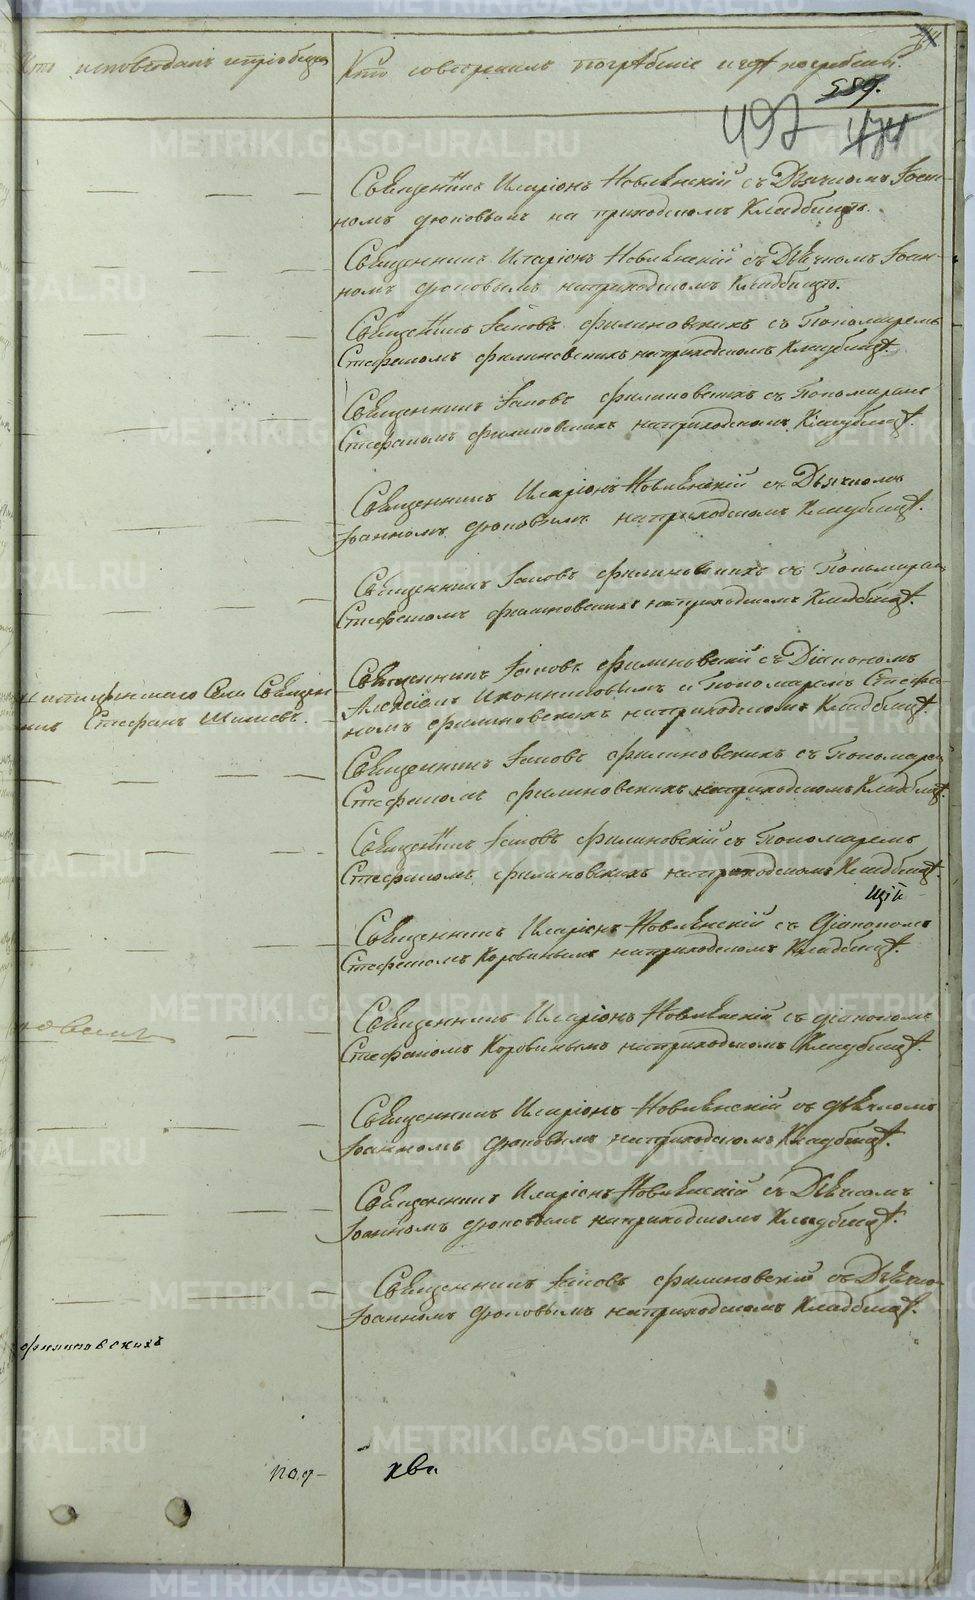 Кто исповѣдалъ и пріобщалъ
Кто совершалъ погребеніе и гдѣ погребены.
559.
497 474
Священникъ Иларіонъ Новленскій съ Дьячкомъ Іоан-
номъ Дюковымъ на приходскомъ Кладбищѣ.
Священникъ Иларіонъ Новленскій съ Дьячкомъ Іоан-
номъ Дюковымъ на приходскомъ Кладбищѣ.
Священникъ Іаковъ Филиновскихъ съ Пономаремъ
Стефаномъ Филиновскихъ на приходскомъ Кладбищѣ.
Священникъ Іаковъ Филиновскихъ съ Пономаремъ
Стефаномъ Филиновскихъ на приходскомъ Кладбищѣ.
Священникъ Иларіонъ Новленскій съ Дьячкомъ
Іоанномъ Дюковымъ на приходскомъ Кладбищѣ.
Священникъ Іаковъ Филиновскихъ съ Пономарем
Стефаномъ Филиновскихъ на приходскомъ Кладбищѣ.
Села Священ
никъ Стефанъ
Священникъ Іаковъ Филиновскій съ Діакономъ
Алексіемъ Иконниковымъ и Пономаремъ Стефа-
номъ Филиновскихъ на приходскомъ Кладбищѣ.
Священникъ Іаковъ Филиновскихъ съ Пономарем
Стефаномъ Филиновскихъ на приходскомъ Кладбищѣ.
Священникъ Іаковъ Филиновскій съ Пономаремъ
Стефаномъ Филиновскихъ на приходскомъ Кладбищѣ.
щій
Священникъ Иларіонъ Новленскій съ Діакономъ
Стефаномъ Коровинымъ на приходскомъ Кладбищѣ.
Священникъ Иларіонъ Новленскій съ Діакономъ
Стефаномъ Коровинымъ на приходскомъ Кладбищѣ.
Священникъ Иларіонъ Новленскій съ Дьячкомъ
Іоанномъ Дюковымъ на приходскомъ Кладбищѣ.
Священникъ Иларіонъ Новленскій съ Дьячкомъ
Іоанномъ Дюковымъ на приходскомъ Кладбищѣ.
Священникъ Іаковъ Филиновскій съ Дьячко
Іоанномъ Дюковымъ на приходскомъ Кладбищѣ.
Филиновскихъ
METRIKI.GASO-URAL.RU